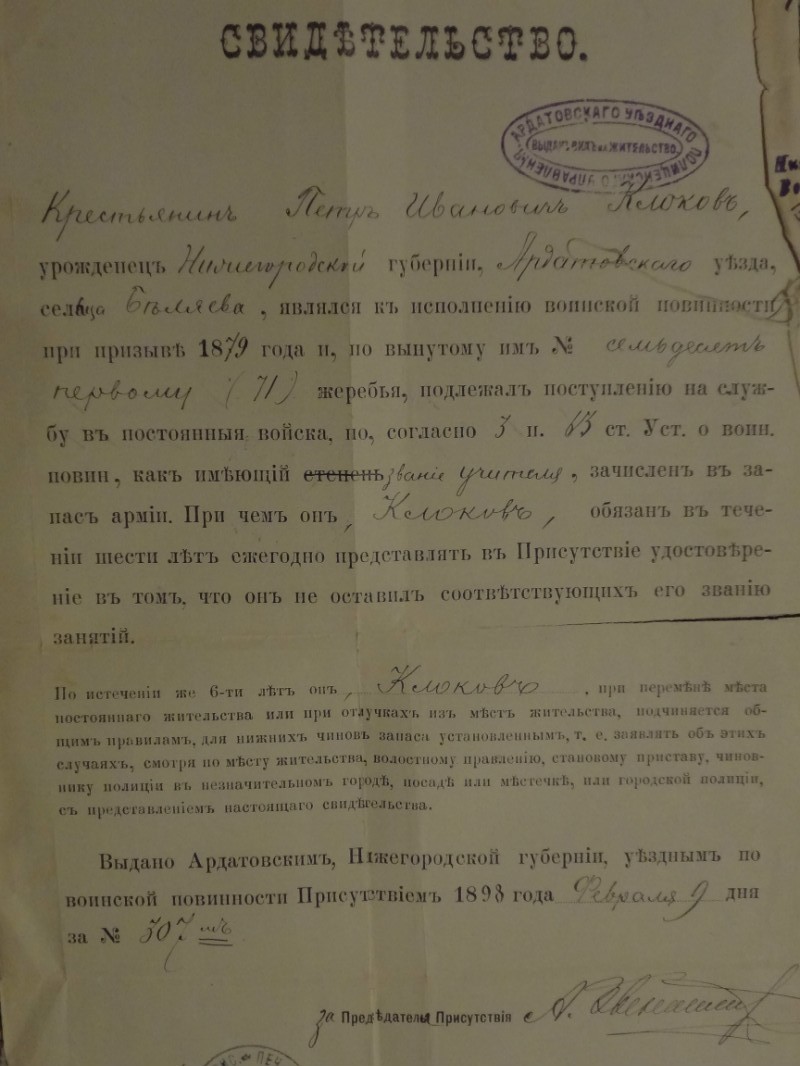 СВИДѢТЕЛЬСТВО.
АРДАТОВСКАГО УѢЗДНАГО ПОЛИЦЕЙСКАГО УПРАВЛЕНІЯ
жительство.
Крестьянинъ Петръ Ивановичъ Клоковъ,
урожденецъ Нижегородской губерніи, Ардатовскаго уѣзда,
сельцо Бѣляева, являлся къ исполненію воинской повинности
при призывѣ 1879 года и, по вынутому имъ № семьдесятъ
первому (71) жеребья, подлежалъ поступленію на служ-
бу въ постоянныя войска, но, согласно 3 п. ст. Уст. о воин.
повин, какъ имѣющій степень званіе учителя, зачисленъ въ за-
пасъ арміи. При чемъ онъ, Клоковъ, обязанъ въ тече-
ніи шести лѣтъ ежегодно представлять въ Присутствіе удостовѣре-
ніе въ томъ, что онъ не оставилъ соотвѣтствующихъ его званію
занятій.
По истеченіи же 6-ти лѣтъ онъ, Клоковъ, при перемѣнѣ мѣста
постояннаго жительства или при отлучкахъ изъ мѣстъ жительства, подчиняется об-
щимъ правиламъ, для нижнихъ чиновъ запаса установленнымъ, т. е. заявлять объ этихъ
случаяхъ, смотря по мѣсту жительства, волостному правленію, становому приставу, чинов-
нику полиціи въ незначительномъ городѣ, посадѣ или мѣстечкѣ, или городской полиціи,
съ представленіемъ настоящаго свидѣтельства.
Выдано Ардатовскимъ, Нижегородской губерніи, уѣзднымъ по
воинской повинности Присутствіемъ 1893 года Февраля 9 дня
за № 307
за Предѣдателя Присутствія А.